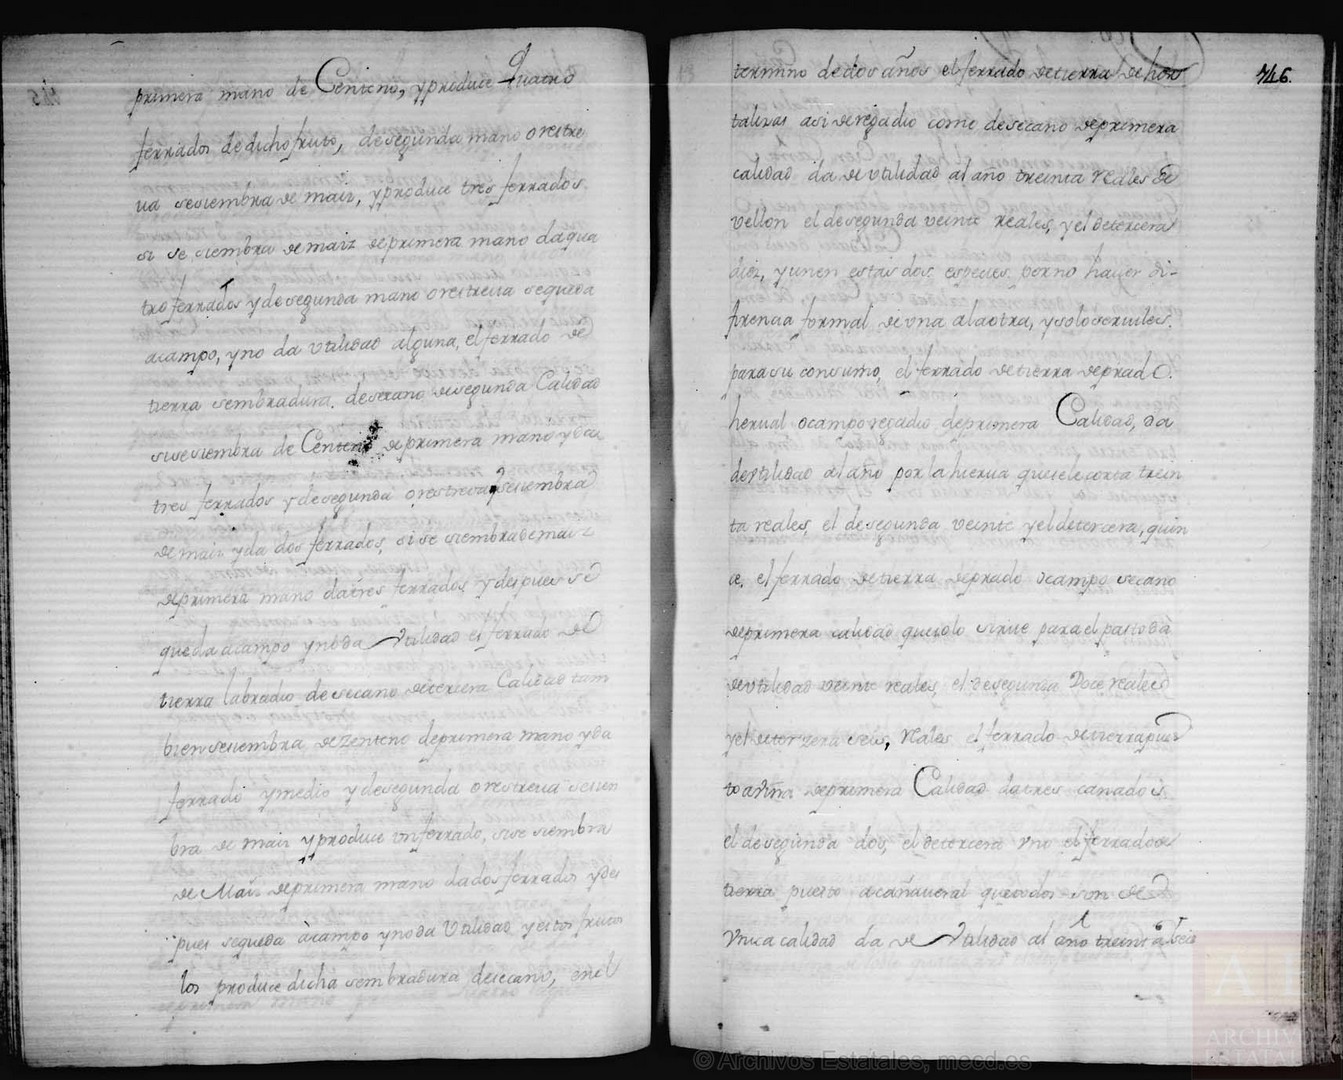 primera mano de Centeno, y produce Quatro
ferrados de dicho fruto, de segunda mano orestre
ua se siembra de maiz, y produce tres ferrados.
si se siembra de maiz de primera mano da qua
tro ferrados y de segunda mano orestreua se queda
acampo, y no da vtilidad alguna, el ferrado de
tierra sembradura. de secano, de segunda Calidad
si se siembra de Centeno de primera mano y da
tres ferrados y de segunda orestreua se siembra
de maiz y da dos ferrados, si se siembra de maiz
de primera mano da tres ferrados, y despues se
queda acampo y no da Vtilidad el ferrado de
tierra labradio de secano de tercera Calidad tam
bien se siembra de Zenteno de primera mano y da
ferrado y medio y de segunda orestreua se siem
bra de maiz y produce vn ferrado, si se siembra
de Maiz de primera mano da dos ferrados y des
pues se queda àcampo y no da Vtilidad y estos frutos
los produce dicha sembradura de secano, en el
746.
termino de dos años el ferrado de tierra de hor
talizas asi de regadio como de secano de primera
calidad da de vtilidad al año treinta reales de
vellon el de segunda veinte reales, y el de tercera
diez, y unen estas dos especies por no hauer di-
ferencia formal de vna a la otra, y solo seruiles.
para su consumo, el ferrado de tierra de prado.
herual o campo regadio de primera Calidad, da
de vtilidad al año por la hierua que se le corta trein
ta reales, el de segunda veinte y el de tercera, quin
ce. el ferrado de tierra de prado o campo secano
de primera calidad que solo sirue para el pasto da
de vtilidad veinte reales, el de segunda Doce reales
y el de terzera seis, reales el ferrado de tierra pues
to a viña de primera Calidad da tres cañados.
el de segunda dos, el de tercera vno el ferrado de
tierra puesto a cañaueral que todos son de
Vnica calidad da de Vtilidad al año treinta y seis
© Archivos Estatales, mecd.es
ARCHIVOS
ESTATALES